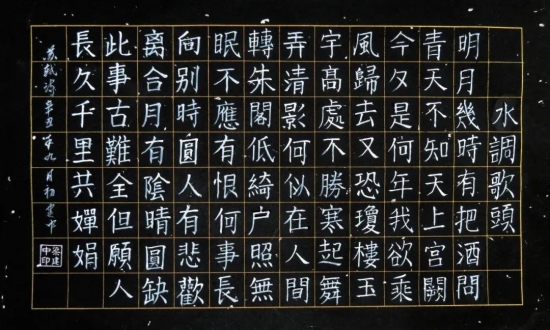 水調歌頭
明月幾時有把酒問
青天不知天上宮闕
今夕是何年我欲乘
風歸去又恐瓊樓玉
宇髙處不勝寒起舞
弄清影何似在人間
轉朱閣低綺户照無
眠不應有恨何事長
向别時圓人有悲歡
离合月有陰晴圓缺
此事古難全但願人
長久千里共嬋娟
蘇軾詞辛丑年九月初建中